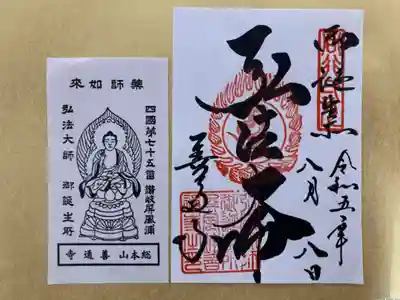 薬師如来
四國第七十五番 讃岐屏風浦
弘法大師 御誕生所
総本山 善通寺
御誕生所
令和五年
八月八日
弘法大師
善通寺